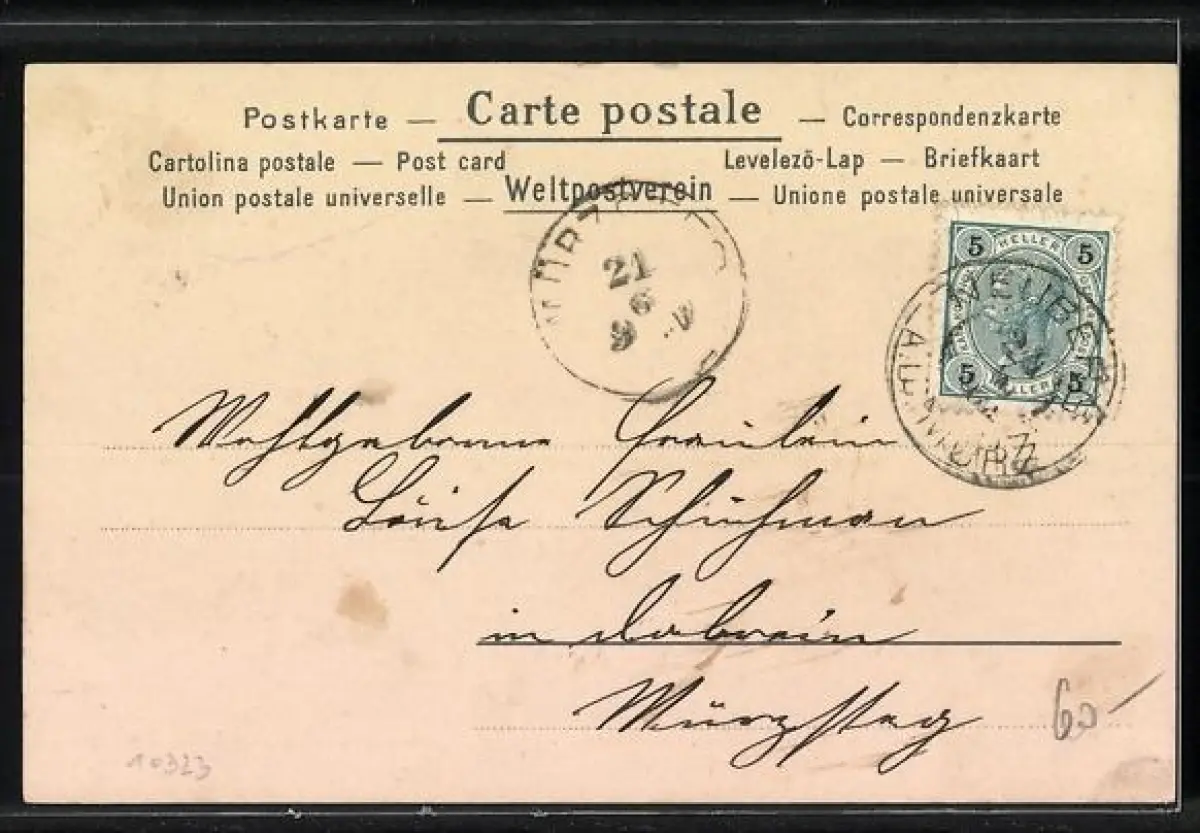 Postkarte — Carte postale — Correspondenzkarte
Cartolina postale — Post card Levelező-Lap — Briefkaart
Union postale universelle — Weltpostverein — Unione postale universale
5 HELLER 5
5 HELLER 5
MÜRZSTEG
21
9
NEUBERG
A.D. MÜRZ
Wohlgeborene Fräulein
Louise Schuhman
in
Mürzsteg
60
10323